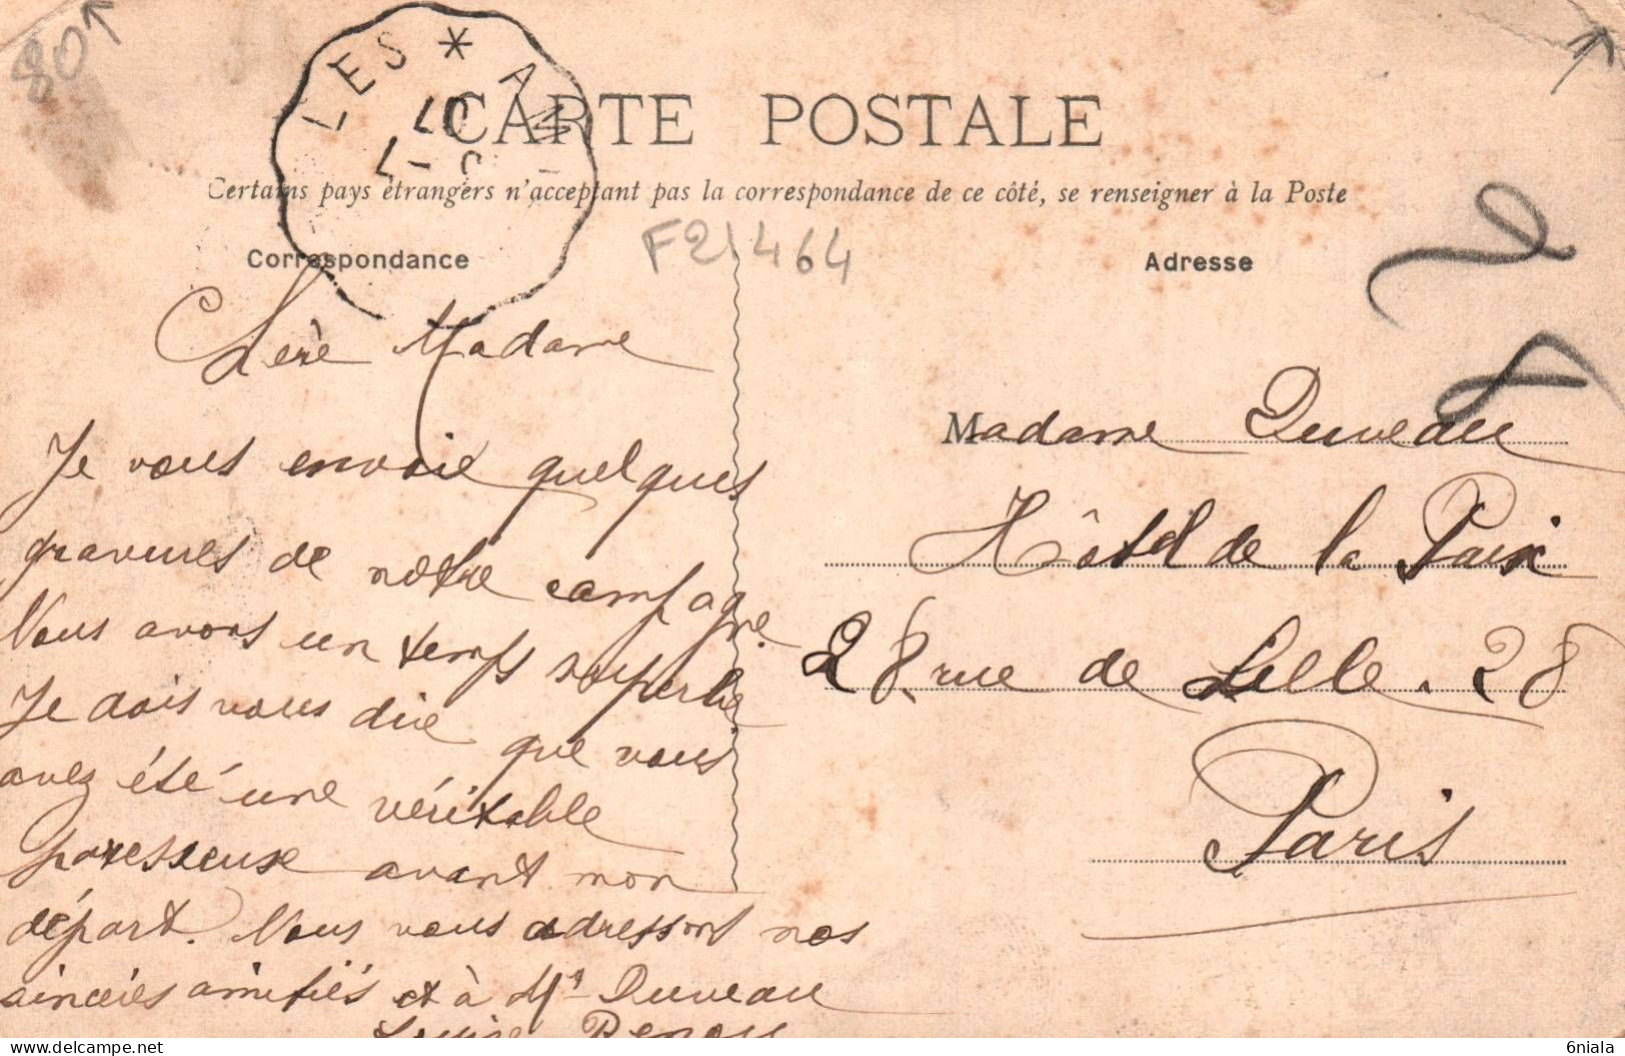 80
LES * A
07
CARTE POSTALE
Certains pays étrangers n'acceptant pas la correspondance de ce côté, se renseigner à la Poste
F21464
Correspondance
Adresse
Chère Madame
Je vous envoie quelques
gravures de notre campagne.
Nous avons un temps superbe
Je dois vous dire que vous
avez été une véritable
paresseuse avant mon
départ. Nous vous adressons nos
sincères amitiés et à Mr Duveau
Louise Renou
Madame Duveau
Hôtel de la Paix
28 rue de Lille. 28
Paris
delcampe.net
6niala